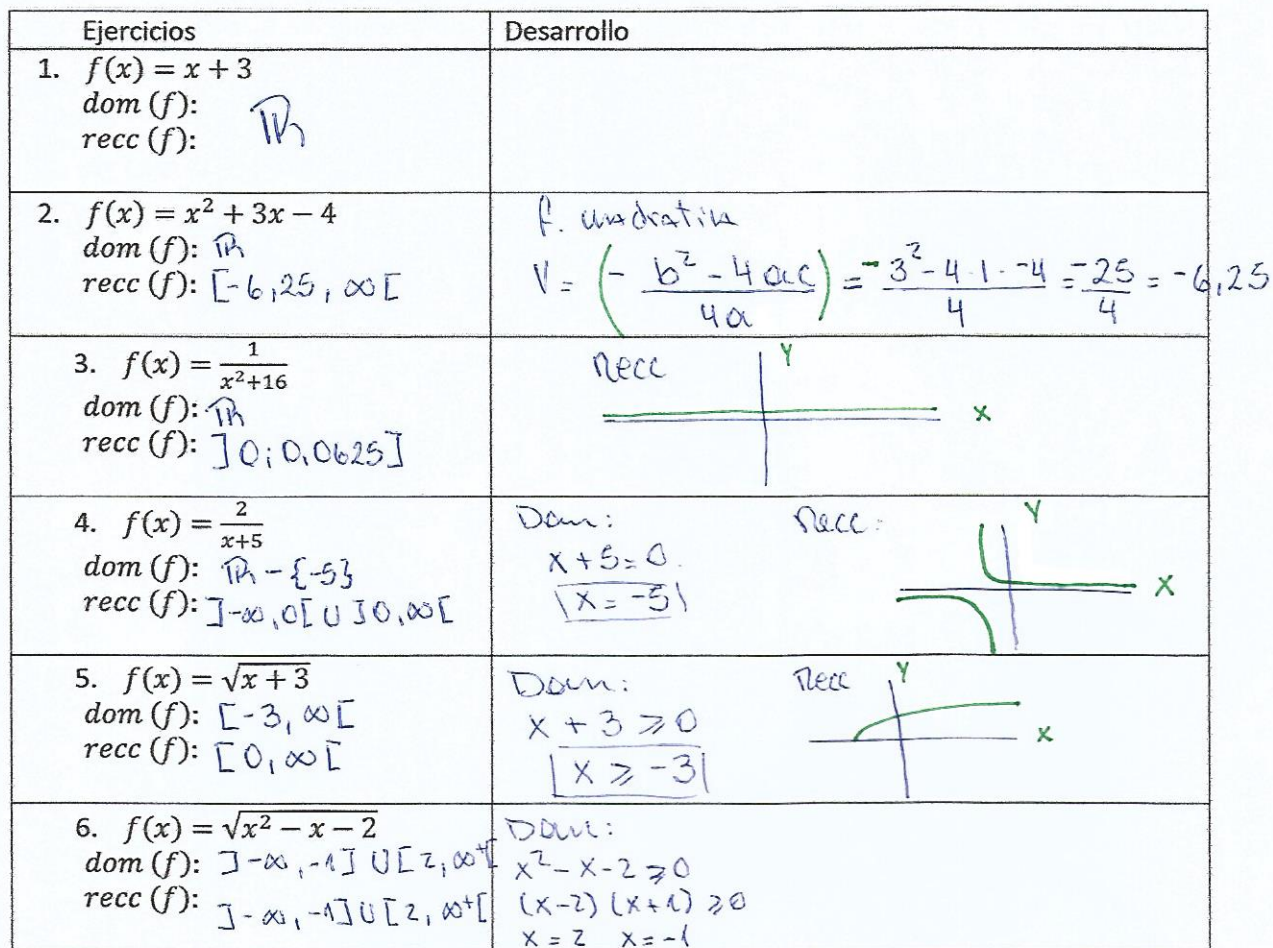 Ejercicios
Desarrollo
1. f(x) = x + 3
dom (f):
recc (f):
ℝ
2. f(x) = x² + 3x − 4
dom (f): ℝ
recc (f): [-6,25, ∞[
f. cuadratica
V = (- b² - 4ac / 4a) = -3² - 4·1·-4 / 4 = -25/4 = -6,25
3. f(x) = 1/(x²+16)
dom (f): ℝ
recc (f): ]0; 0,0625]
Recc
Y
X
4. f(x) = 2/(x+5)
dom (f): ℝ - {-5}
recc (f): ]-∞, 0[ ∪ ]0, ∞[
Dom:
x + 5 = 0.
x = -5
Recc:
Y
X
5. f(x) = √(x + 3)
dom (f): [-3, ∞[
recc (f): [0, ∞[
Dom:
x + 3 ≥ 0
x ≥ -3
Recc
Y
X
6. f(x) = √(x² − x − 2)
dom (f): ]-∞, -1] ∪ [2, ∞⁺[
recc (f): ]-∞, -1] ∪ [2, ∞⁺[
Dom:
x² - x - 2 ≥ 0
(x-2) (x+1) ≥ 0
x = 2 x = -1